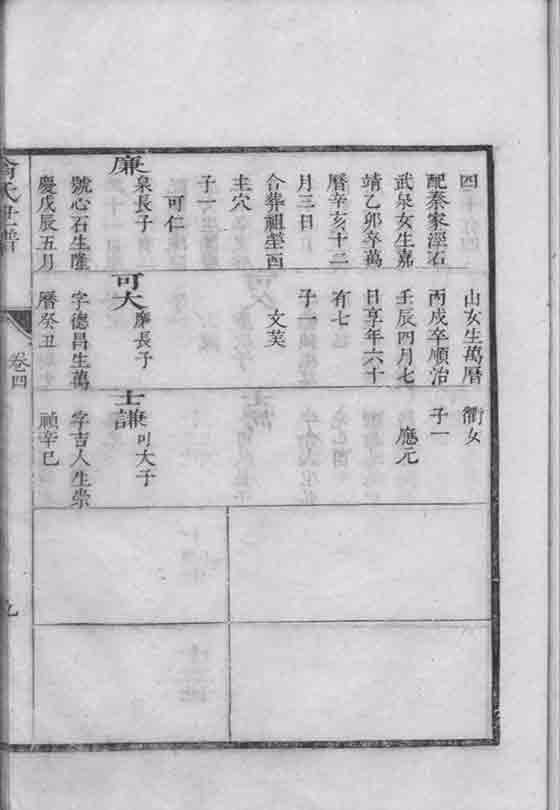 四
配秦家涇石
武泉女生嘉
靖乙卯卒萬
曆辛亥十二
月三日
合葬祖塋酉
主穴
子一
可仁
廉
泉長子
號心石生隆
慶戊辰五月
山女生萬曆
丙戌卒順治
壬辰四月七
日享年六十
有七
子一
文芙
可大
廉長子
字德昌生萬
曆癸丑
衢女
子一
應元
士謙
可大子
字吉人生崇
禎辛巳
氏世譜
卷四
九